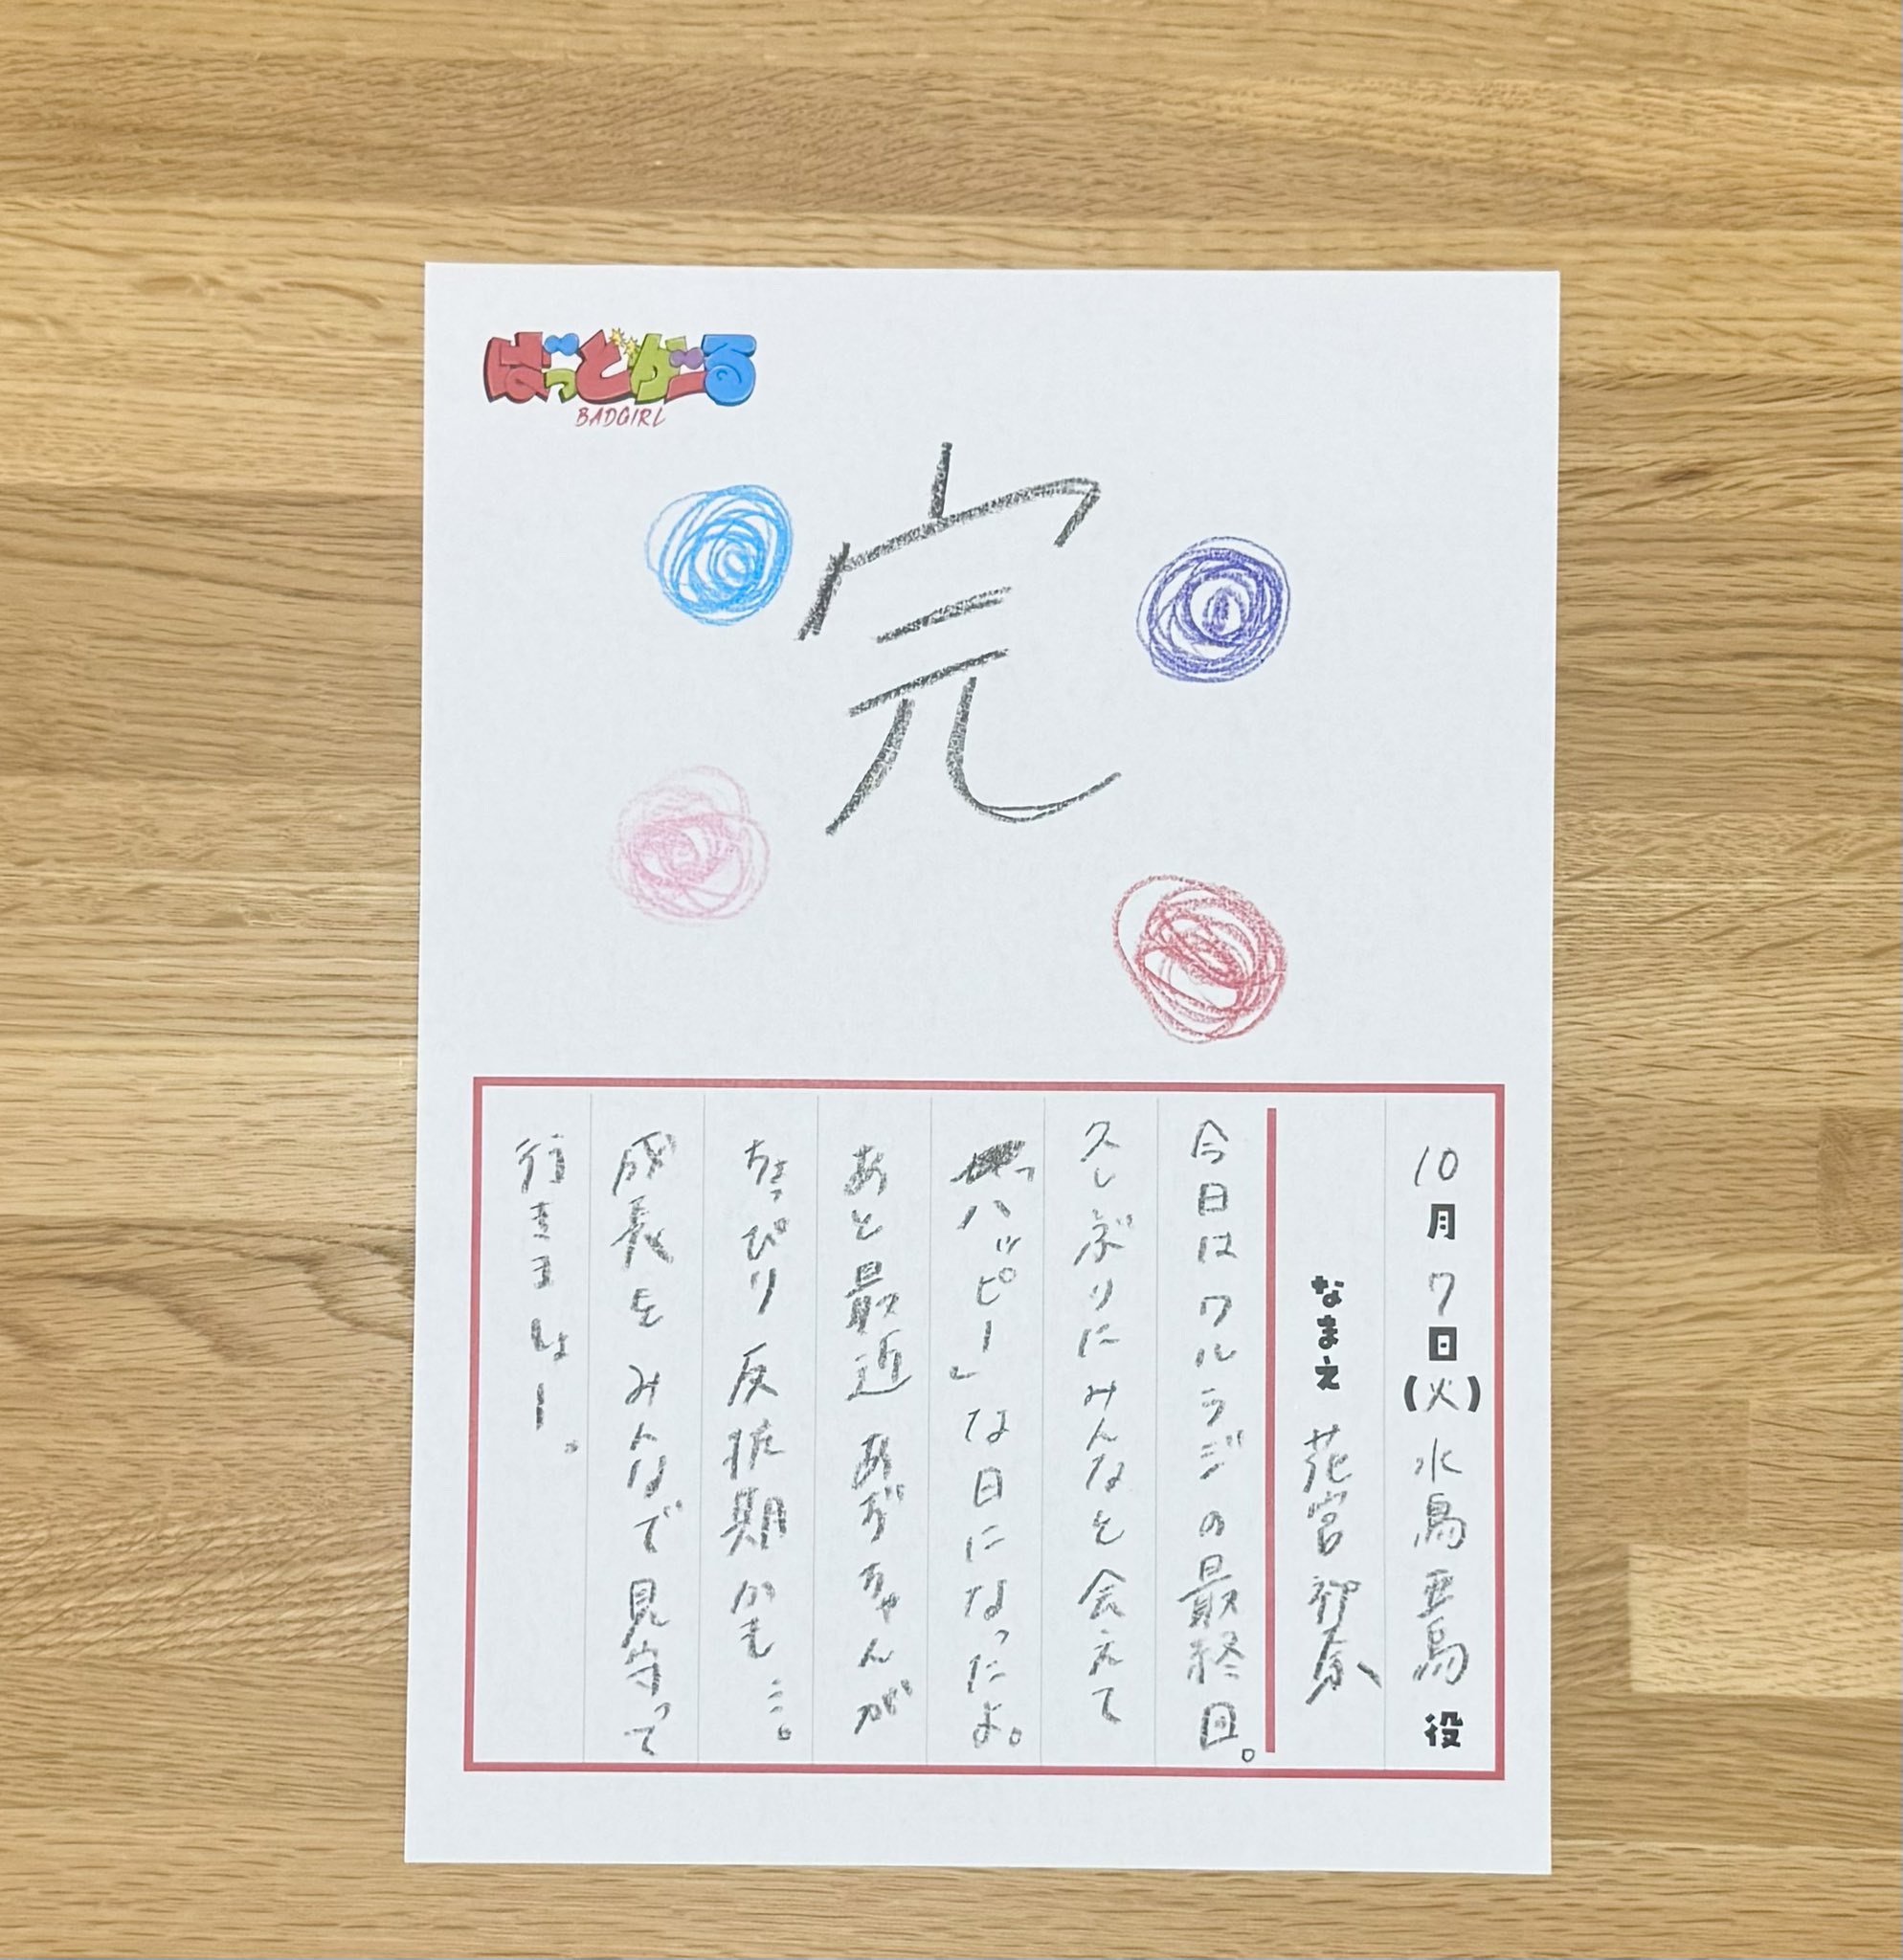 ばっどがーる
BADGIRL
完
10月7日(火) 水鳥亜鳥 役
なまえ 花宮初奈
今日はワルラジの最終回。
久しぶりにみんなと会えて
「ハッピー」な日になったよ。
あと最近 あずちゃんが
ちょっぴり反抗期かも…。
成長をみんなで見守って
行きましょー。